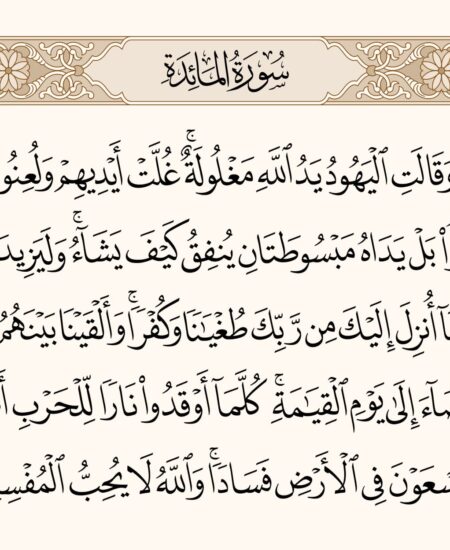 سُورَةُ المَائِدَة
وَقَالَتِ ٱلۡيَهُودُ يَدُ ٱللَّهِ مَغۡلُولَةٌۚ غُلَّتۡ أَيۡدِيهِمۡ وَلُعِنُو
اْ بَلۡ يَدَاهُ مَبۡسُوطَتَانِ يُنفِقُ كَيۡفَ يَشَآءُۚ وَلَيَزِيدَ
آ أُنزِلَ إِلَيۡكَ مِن رَّبِّكَ طُغۡيَٰنٗا وَكُفۡرٗاۚ وَأَلۡقَيۡنَا بَيۡنَهُمُ
ضَآءَ إِلَىٰ يَوۡمِ ٱلۡقِيَٰمَةِۚ كُلَّمَآ أَوۡقَدُواْ نَارٗا لِّلۡحَرۡبِ أَ
سۡعَوۡنَ فِي ٱلۡأَرۡضِ فَسَادٗاۚ وَٱللَّهُ لَا يُحِبُّ ٱلۡمُفۡسِ